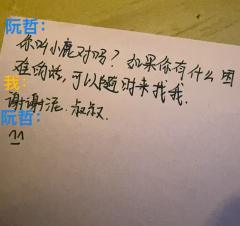 阮哲:
你叫小鹿对吗？如果你有什么困
难的话，可以随时来找我.
我:
谢谢泥.叔叔.
阮哲: